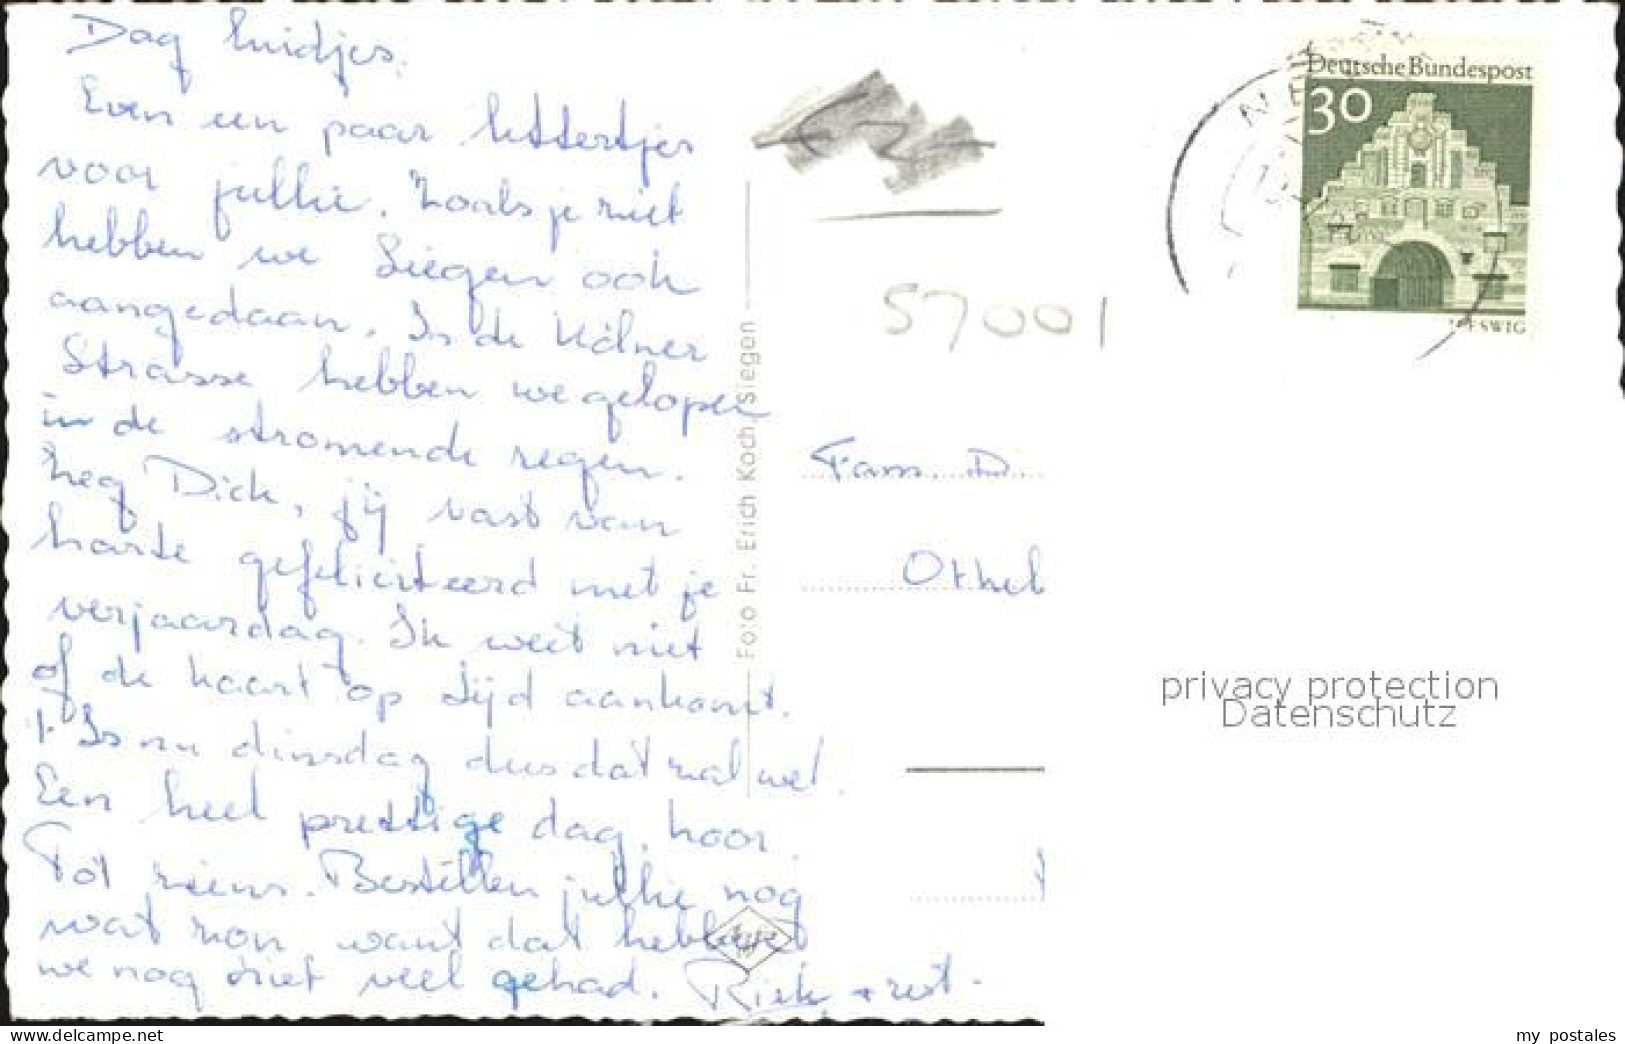 Dag luidjes,
Even een paar lettertjes
voor jullie. Zoals je ziet
hebben we Siegen ook
aangedaan. In de Kölner
Strasse hebben we gelopen
in de stromende regen.
heg Dick, jij vast van
harte gefeliciteerd met je
verjaardag. Ik weet niet
of de kaart op tijd aankomt.
't Is nu dinsdag dus dat zal wel.
Een heel prettige dag, hoor.
Tot ziens. Bestellen jullie nog
wat zon, want dat hebben
we nog niet veel gehad. Riek + rest.
Foto Fr. Erich Koch, Siegen
57001
Deutsche Bundespost
30
Fam. D.
Othel
privacy protection
Datenschutz
delcampe.net
my postales